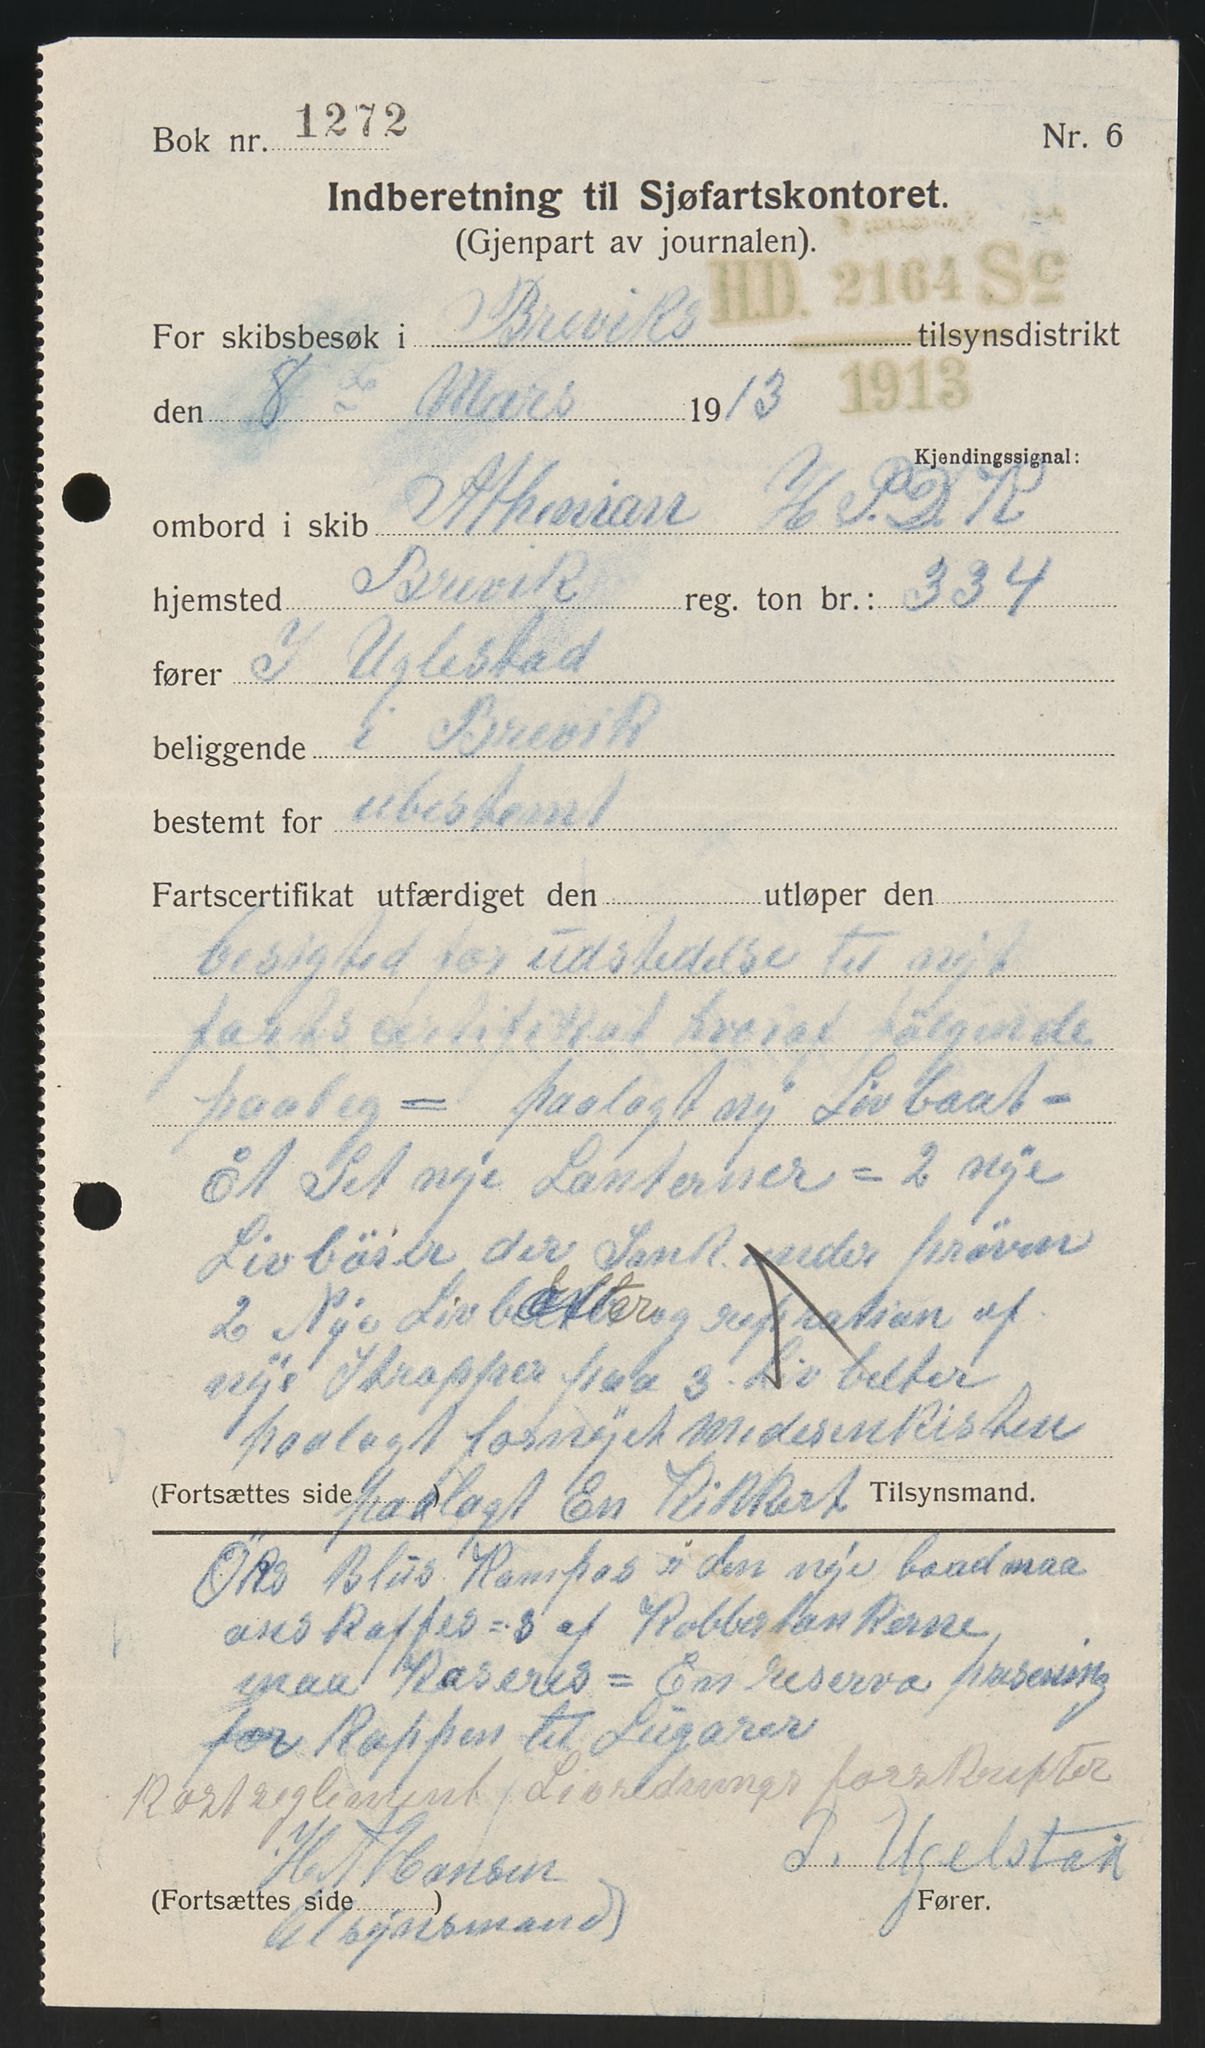 Bok nr. 1272
Nr. 6
Indberetning til Sjøfartskontoret.
(Gjenpart av journalen).
H.D. 2164 Sc
1913
For skibsbesøk i Breviks tilsynsdistrikt
den 8 de Mars 1913
Kjendingssignal:
ombord i skib Athenian H P. D. K
hjemsted Brevik reg. ton br.: 334
fører I Uglestad
beliggende i Brevik
bestemt for ubestemt
Fartscertifikat utfærdiget den utløper den
besigted for udstedelse til nyt
fartscertifikat hvoraf følgende
paaleg = paalagt ny Livbaat =
Et Set nye Lanterner = 2 nye
Livböier der Sank under pröven
2 Nye Livbælter og repration af
nye Stropper paa 3 Livbelter
paalagt fornyet Medesinkisten
(Fortsættes side ) Tilsynsmand.
paalagt En Kikkert
Öks Blus Kompas i den nye baad maa
anskaffes = 3 af Kobbertankerne
maa Kaseres = En reserva presening
for Kappen til Lugarer
Kostreglement / Livrednings forskrifter
H A Hansen
P. Ugelstad
(Fortsættes side )
Fører.
tilsynsmand)